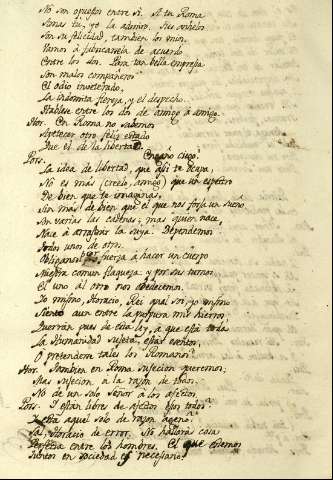 No son opuestos entre sí. A tu Roma
Amas tú; yo la admiro. Sus anhelos
Son su felicidad, tambien los mios.
Vamos á fabricarsela de acuerdo
Entre los dos. Para tan bella empresa
Son malos compañeros
El odio inveterado,
La indómita fiereza, y el despecho.
Hablese entre los dos de amigo á amigo.
Hor. En Roma no sabemos
Apetecer otro feliz estado
Que el de la libertad.
Pors. Engaño ciego!
La idea de libertad, que assi te ocupa,
No es más (creelo, amigo) que un espectro
De bien que te imaginas,
Sin más de bien que el que nos forja un sueño.
Son varias las cadenas; mas quien nace,
Nace á arrastrar la suya. Dependemos
Todos unos de otros.
Obliganos fuerza á hacer un cuerpo
Nuestra comun flaqueza: y por sus turnos
El uno al otro nos obedecemos.
Yo mismo, Horacio, Rei qual soi, yo mismo
Siento aun entre la púrpura mis hierros.
Querrán pues de esta ley, á que está toda
La Humanidad sujeta, estar exentos,
O pretenderse tales los Romanos?
Hor. Tambien en Roma sujecion queremos;
Mas sujecion á la razon de todos,
No de un solo Señor á los afectos.
Pors. Y están libres de afectos esos todos?
Y está aquel solo de razon ageno?
Sal, Horacio de error. No hallará cosa
Perfecta entre los hombres. El que estemos
Unidos en sociedad es necesario;